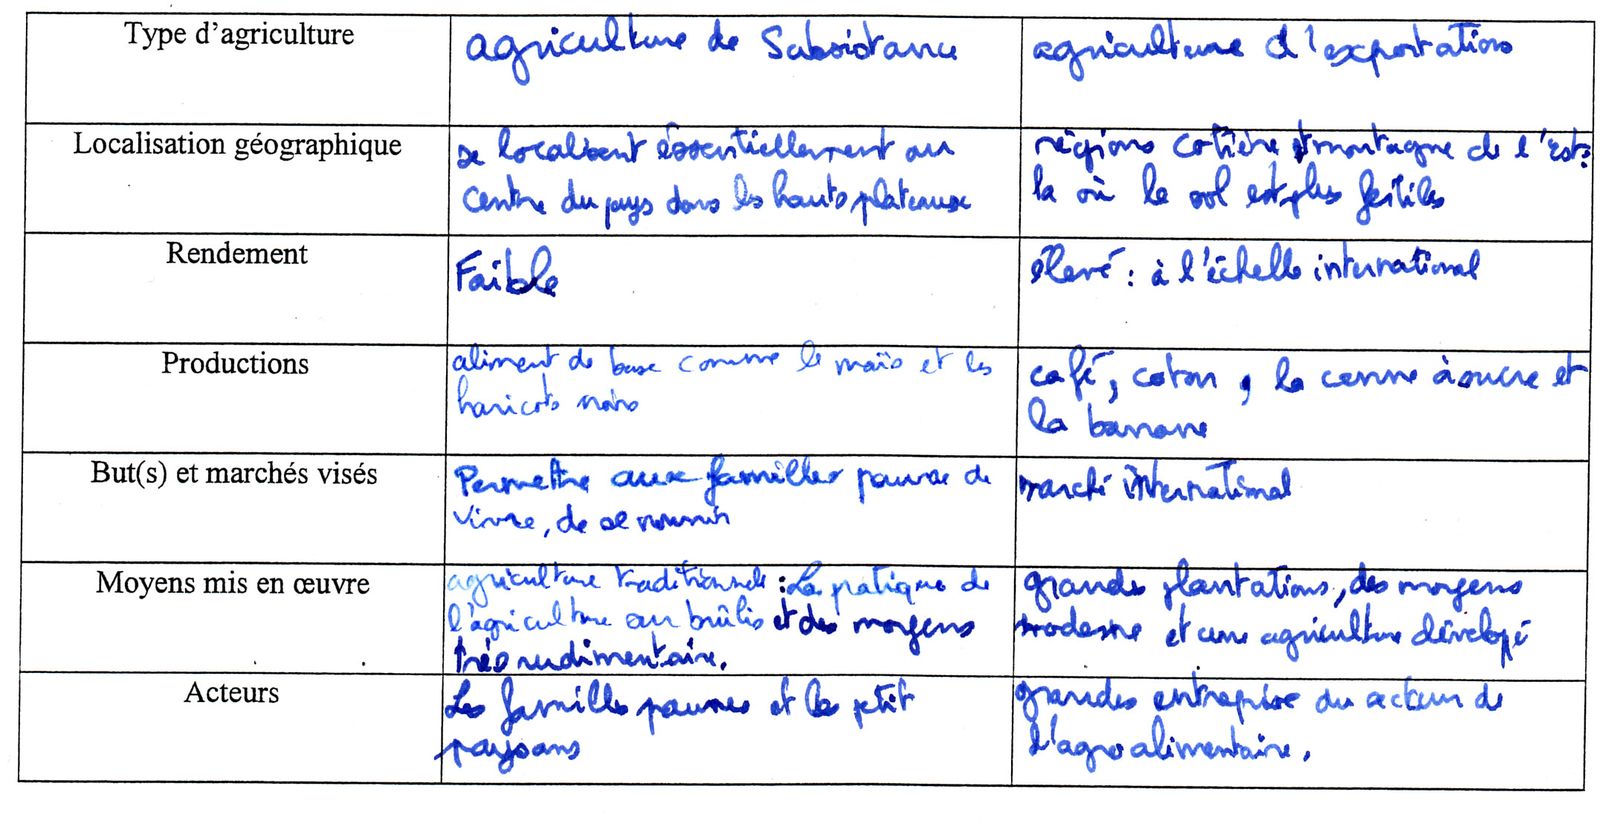 Type d'agriculture
agriculture de Subsistance
agriculture d'exportations
Localisation géographique
se localisent éssentiellement au
centre du pays dans les hauts plateaux
régions cotière et montagne de l'est :
la où le sol est plus fertiles
Rendement
Faible
élevé : à l'échelle international
Productions
aliment de base comme le maïs et les
haricots noirs
café, coton, la canne à sucre et
la banane
But(s) et marchés visés
Permettre aux familles pauvres de
vivre, de se nourrir
marché international
Moyens mis en œuvre
agriculture traditionnele : La pratique de
l'agriculture sur brûlis et des moyens
très rudimentaire.
grandes plantations, des moyens
moderne et une agriculture dévelopé
Acteurs
Les famille pauvres et les petit
paysans
grandes entreprise du secteur de
l'agroalimentaire.